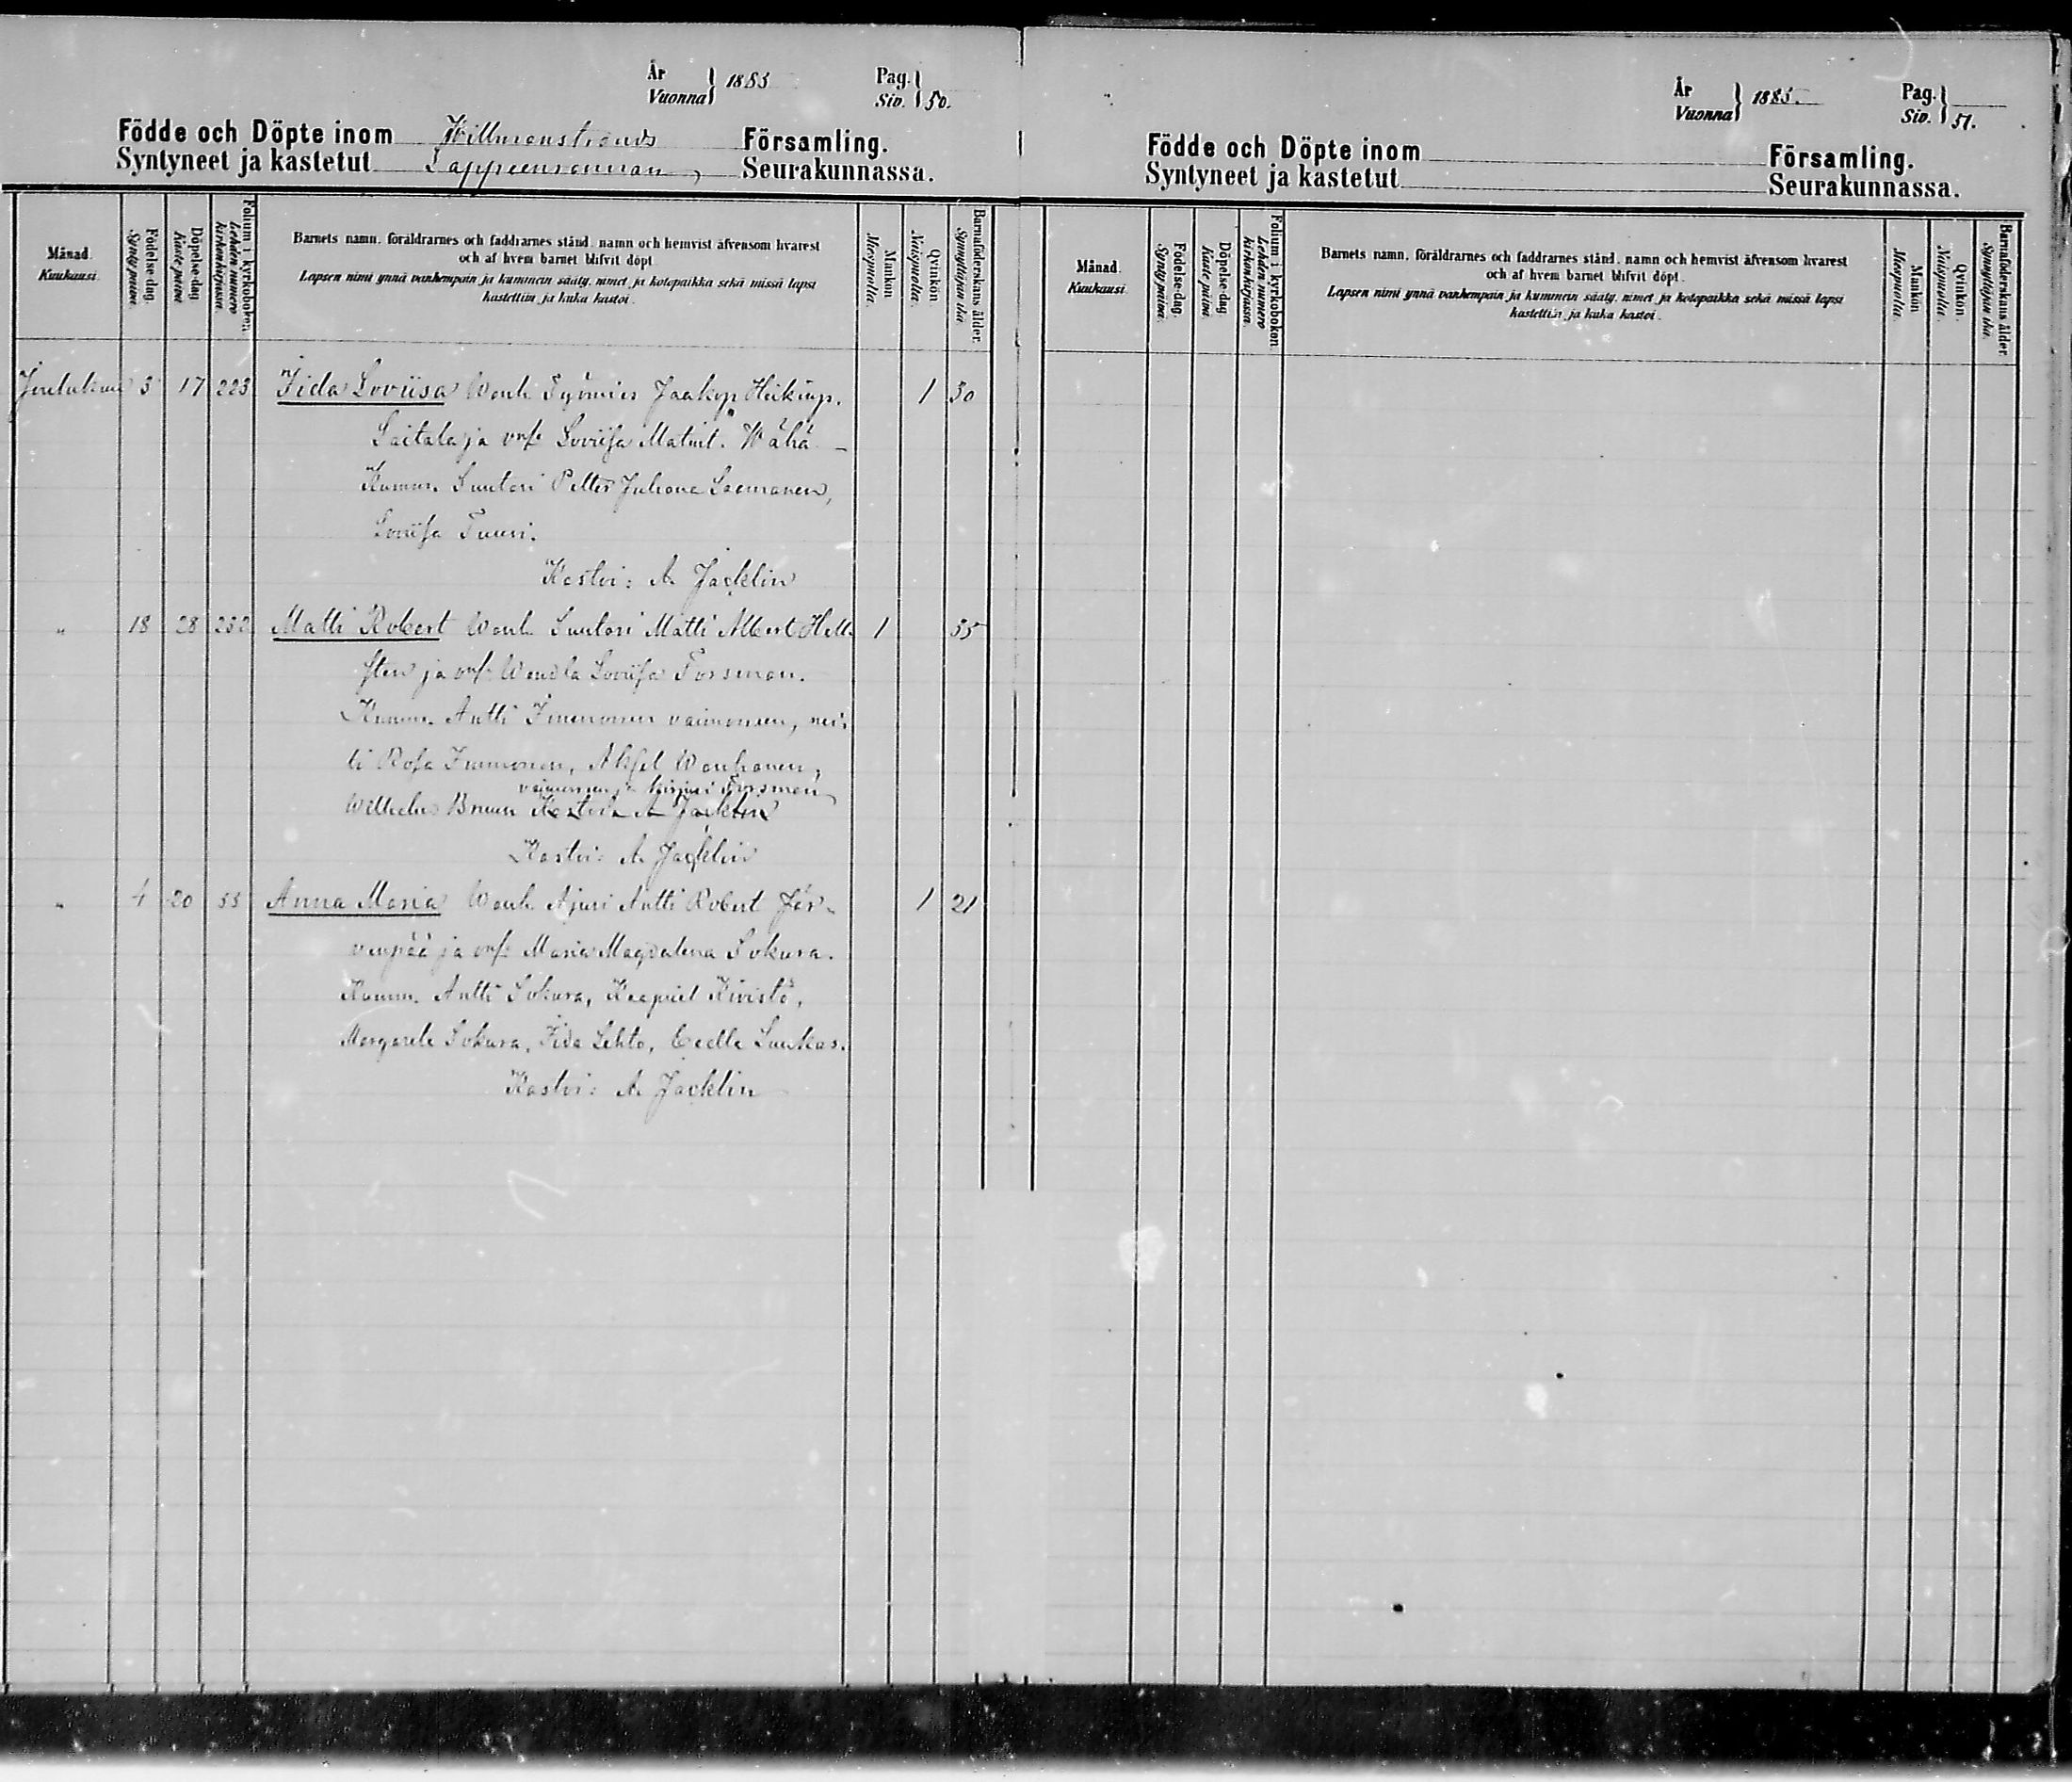 År
Vuonna } 1885
Pag.
Siv. } 50.
Födde och Döpte inom Willmanstrands Församling.
Syntyneet ja kastetut Lappeenrannan Seurakunnassa.
Månad.
Kuukausi.
Födelse-dag.
Synty-päivä.
Döpelse-dag.
Kaste-päivä.
Folium i kyrkoboken.
Lehden numero kirkonkirjassa.
Barnets namn, föräldrarnes och faddrarnes stånd, namn och hemvist äfvensom hvarest
och af hvem barnet blifvit döpt.
Lapsen nimi ynnä vanhempain ja kummein sääty, nimet ja kotopaikka sekä missä lapsi
kastettiin ja kuka kastoi.
Mankön.
Miespuolia.
Qvinkön.
Naispuolia.
Barnaföderskans ålder.
Synnyttäjän ikä.
Joulukuu 3 17 223 Iida Loviisa Wanh. Työmies Jaakop Heikinp. 1 30
Laitala ja vmo Loviisa Matint. Wähä
Kumm. Suutari Petter Juhana Saemanen,
Loviisa Tuuri.
Kastoi: A. Jacklin
" 18 28 232 Matti Robert Wanh. Suutari Matti Albert Hell- 1 35
sten ja vmo Wendla Loviisa Forsman.
Kumm. Antti Immonen vaimonsen, nei-
ti Rosa Immonen, Aksel Wanhanen,
vaimonsen ja Forsman
Wilhelm Bruun Kastoi A Jacklin
Kastoi: A. Jacklin
" 4 20 55 Anna Maria Wanh. Ajuri Antti Robert Jär- 1 21
venpää ja vmo Maria Magdalena Sokura.
Kumm. Antti Sokura, Kaapriel Kivistö,
Margareta Sokura, Iida Lehto, Luukas.
Kastoi: A. Jacklin
År
Vuonna } 1885.
Pag.
Siv. } 51.
Födde och Döpte inom Församling.
Syntyneet ja kastetut Seurakunnassa.
Månad.
Kuukausi.
Födelse-dag.
Synty-päivä.
Döpelse-dag.
Kaste-päivä.
Folium i kyrkoboken.
Lehden numero kirkonkirjassa.
Barnets namn, föräldrarnes och faddrarnes stånd, namn och hemvist äfvensom hvarest
och af hvem barnet blifvit döpt.
Lapsen nimi ynnä vanhempain ja kummein sääty, nimet ja kotopaikka sekä missä lapsi
kastettiin ja kuka kastoi.
Mankön.
Miespuolia.
Qvinkön.
Naispuolia.
Barnaföderskans ålder.
Synnyttäjän ikä.